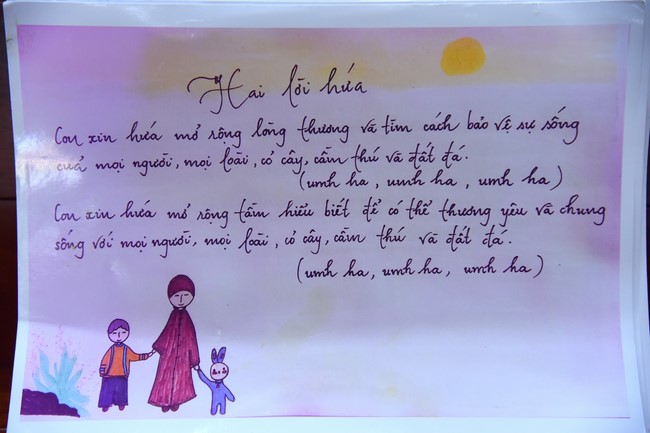 Hai lời hứa
Con xin hứa mở rộng lòng thương và tìm cách bảo vệ sự sống
của mọi người, mọi loài, cỏ cây, cầm thú và đất đá.
(umh ha, umh ha, umh ha)
Con xin hứa mở rộng tầm hiểu biết để có thể thương yêu và chung
sống với mọi người, mọi loài, cỏ cây, cầm thú và đất đá.
(umh ha, umh ha, umh ha)